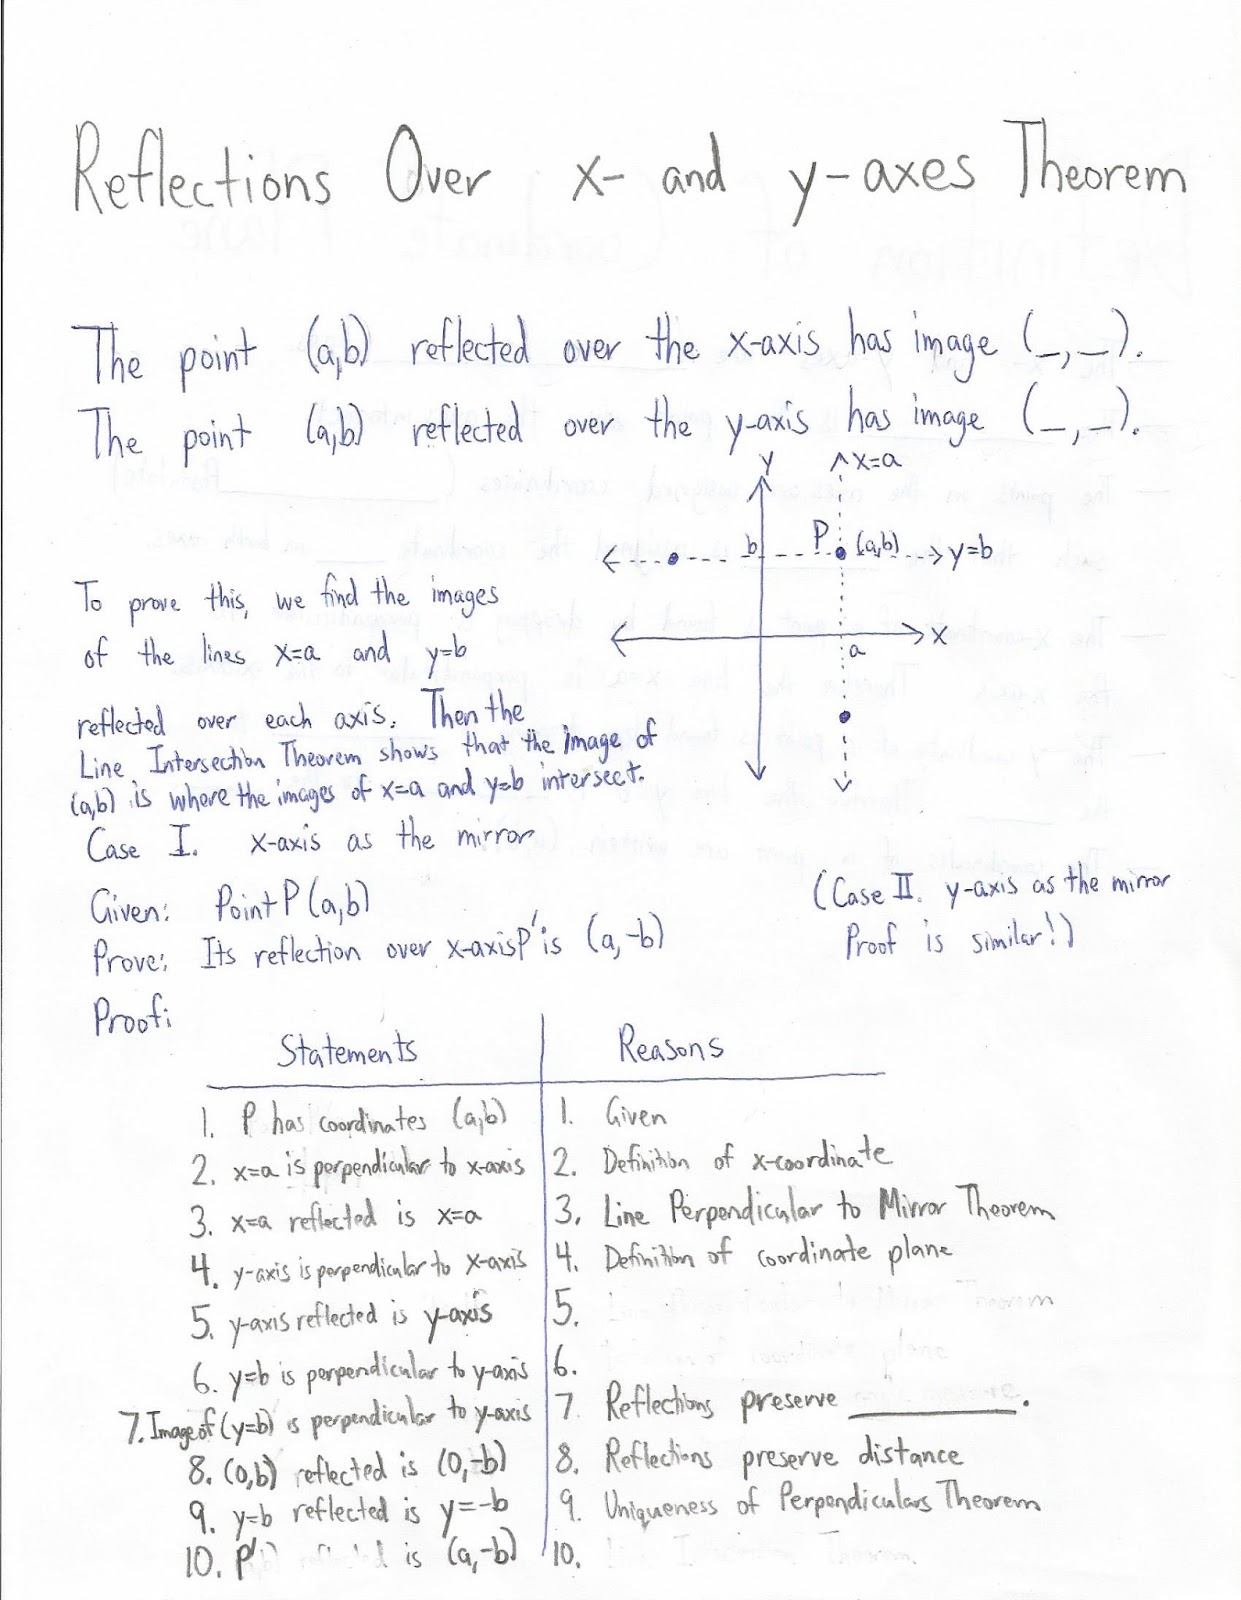 Reflections Over x- and y-axes Theorem
The point (a,b) reflected over the x-axis has image (_,_).
The point (a,b) reflected over the y-axis has image (_,_).
y
x=a
b
P
(a,b)
y=b
x
a
To prove this, we find the images
of the lines x=a and y=b
reflected over each axis. Then the
Line Intersection Theorem shows that the image of
(a,b) is where the images of x=a and y=b intersect.
Case I. x-axis as the mirror
Given: Point P (a,b)
Prove: Its reflection over x-axis P' is (a,-b)
(Case II. y-axis as the mirror
Proof is similar!)
Proof:
Statements
Reasons
1. P has coordinates (a,b)
1. Given
2. x=a is perpendicular to x-axis
2. Definition of x-coordinate
3. x=a reflected is x=a
3. Line Perpendicular to Mirror Theorem
4. y-axis is perpendicular to x-axis
4. Definition of coordinate plane
5. y-axis reflected is y-axis
5.
6. y=b is perpendicular to y-axis
6.
7. Image of (y=b) is perpendicular to y-axis
7. Reflections preserve ________.
8. (0,b) reflected is (0,-b)
8. Reflections preserve distance
9. y=b reflected is y=-b
9. Uniqueness of Perpendiculars Theorem
10. P' is (a,-b)
10.